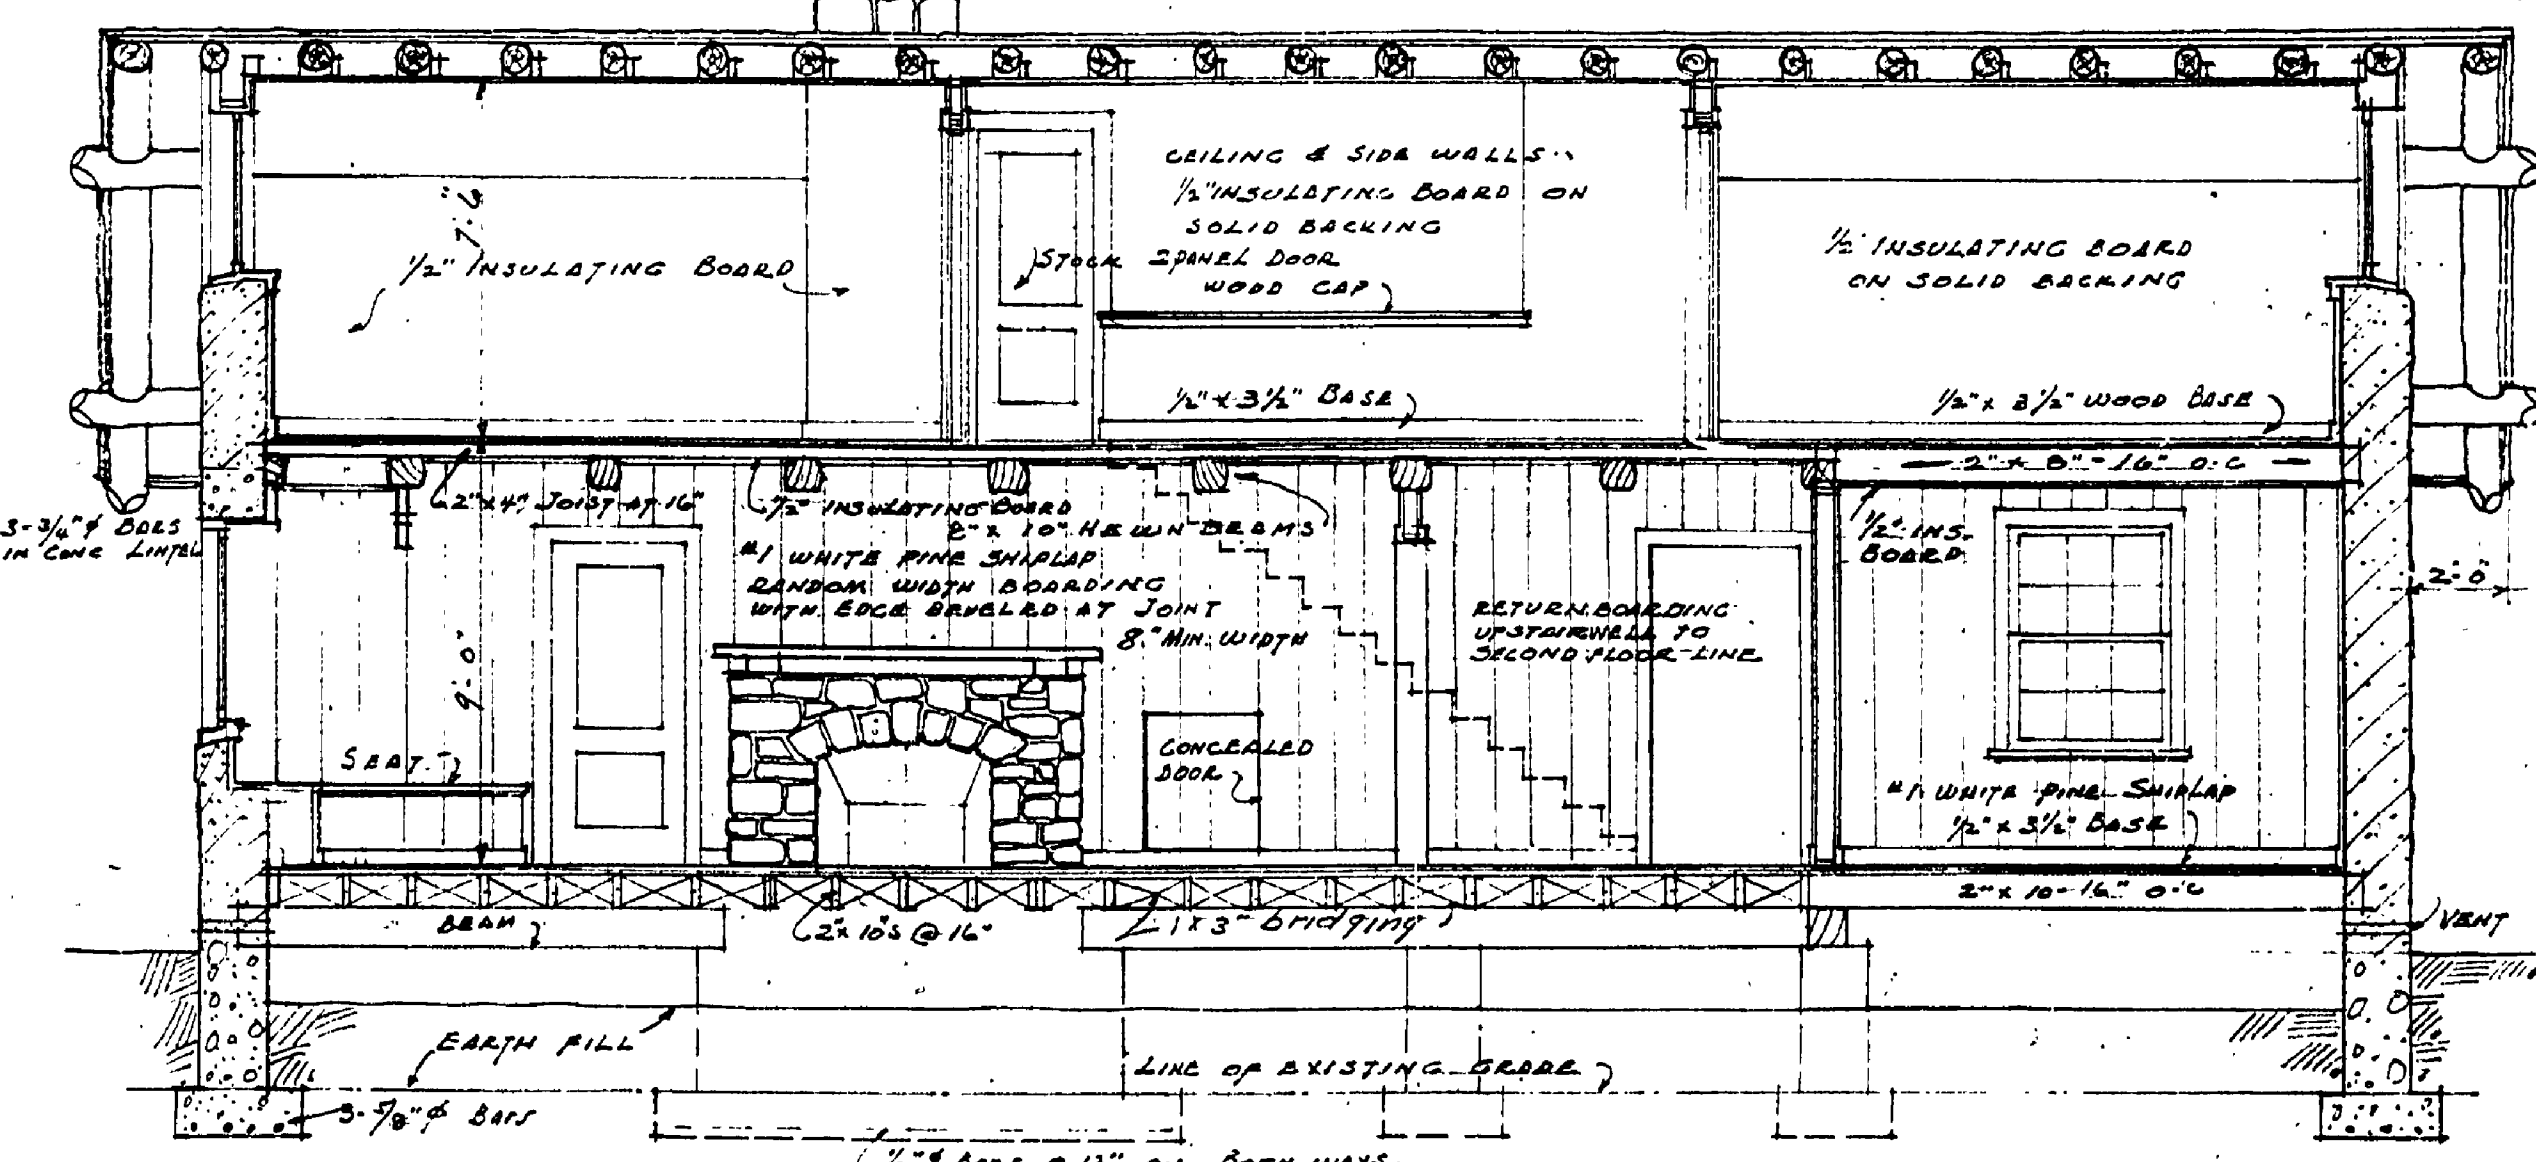 CEILING & SIDE WALLS
1/2" INSULATING BOARD ON
SOLID BACKING
7'-6"
1/2" INSULATING BOARD
STOCK 2 PANEL DOOR
WOOD CAP
1/2" INSULATING BOARD
ON SOLID BACKING
1/2" x 3 1/2" BASE
1/2" x 3 1/2" WOOD BASE
2" x 8" - 16" O.C
2" x 4" JOIST AT 16"
1/2" INSULATING BOARD
8" x 10" HEWN BEAMS
3-3/4" ϕ BARS
IN CONC LINTEL
#1 WHITE PINE SHIPLAP
RANDOM WIDTH BOARDING
WITH EDGE BEVELED AT JOINT
8" MIN. WIDTH
1/2" INS.
BOARD
2'-0"
RETURN BOARDING
UP STAIRWELL TO
SECOND FLOOR LINE
9'-0"
SEAT
CONCEALED
DOOR
#1 WHITE PINE SHIPLAP
1/2" x 3 1/2" BASE
2" x 10 - 16" O.C
BEAM
2" x 10's @ 16"
1 x 3" bridging
VENT
EARTH FILL
LINE OF EXISTING GRADE
3-5/8" ϕ BARS